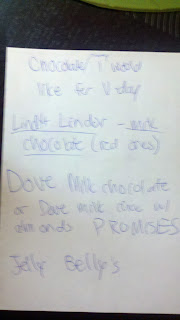 Chocolate I would
like for V-day
Lindt Lindor - milk
chocolate (red ones)
Dove Milk chocolate
or Dove milk choc w/
almonds PROMISES
Jelly Belly's